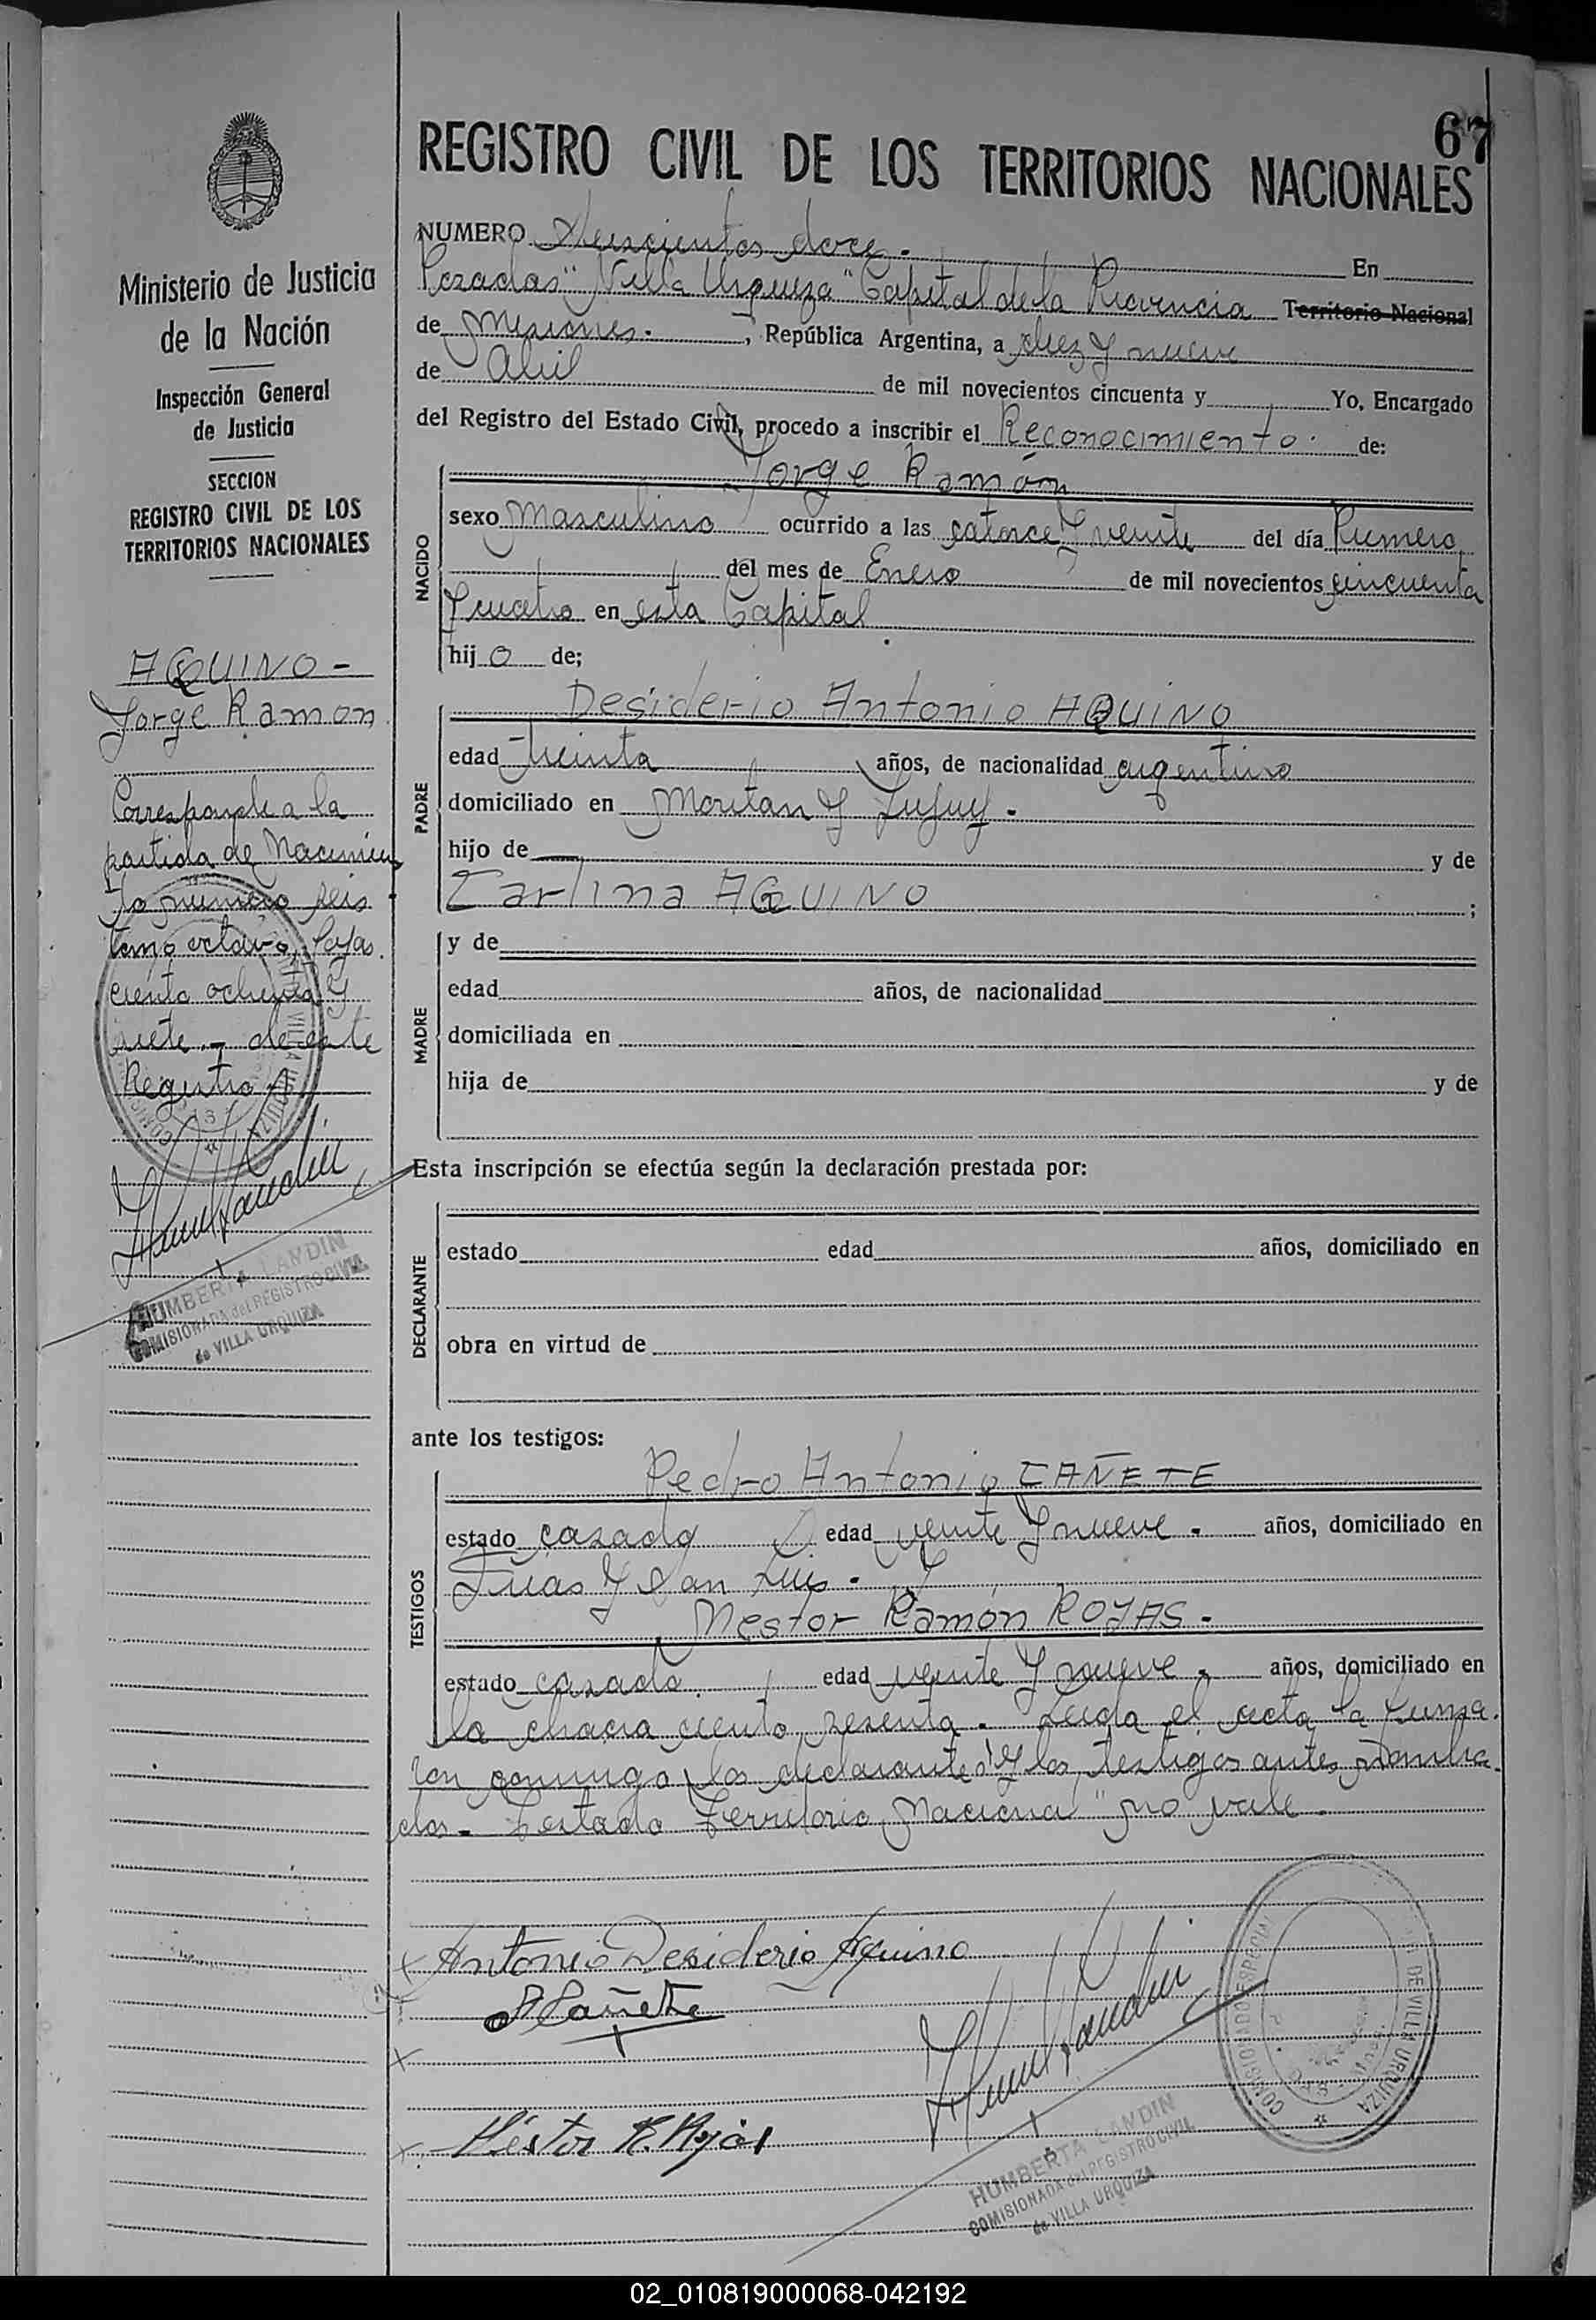 67
REGISTRO CIVIL DE LOS TERRITORIOS NACIONALES
Ministerio de Justicia
de la Nación
Inspección General
de Justicia
SECCION
REGISTRO CIVIL DE LOS
TERRITORIOS NACIONALES
AQUINO -
Jorge Ramon
Corresponde a la
partida de Nacimien
to numero seis
tomo octavo, fojas
ciento ochenta y
siete. - de este
Registro
HUMBERTA LANDIN
COMISIONADA del REGISTRO CIVIL
de VILLA URQUIZA
NUMERO Doscientos doce. En
Posadas "Villa Urquiza" Capital de la Provincia Territorio Nacional
de Misiones. , República Argentina, a diez y nueve
de Abril de mil novecientos cincuenta y Yo, Encargado
del Registro del Estado Civil, procedo a inscribir el Reconocimiento. de:
NACIDO
Jorge Ramón
sexo Masculino ocurrido a las catorce y veinte del día Primero
del mes de Enero de mil novecientos cincuenta
y cuatro en esta Capital
hijo de;
PADRE
Desiderio Antonio AQUINO
edad treinta años, de nacionalidad argentino
domiciliado en y Jujuy.
hijo de y de
AQUINO ;
MADRE
y de
edad años, de nacionalidad
domiciliada en
hija de y de
Esta inscripción se efectúa según la declaración prestada por:
DECLARANTE
estado edad años, domiciliado en
obra en virtud de
ante los testigos:
TESTIGOS
Pedro Antonio CAÑETE
estado casado edad veinte y nueve. años, domiciliado en
y San Luis.
Nestor Ramón ROJAS.
estado casado edad veinte y nueve. años, domiciliado en
la chacra ciento sesenta. Leida el acta la firma
ron conmigo los declarantes y los testigos antes nombra
dos. Testado "Territorio Nacional" no vale.
Antonio Desiderio Aquino
Cañete
Néstor R. Rojas
HUMBERTA LANDIN
COMISIONADA del REGISTRO CIVIL
de VILLA URQUIZA
DE VILLA URQUIZA
02_010819000068-042192